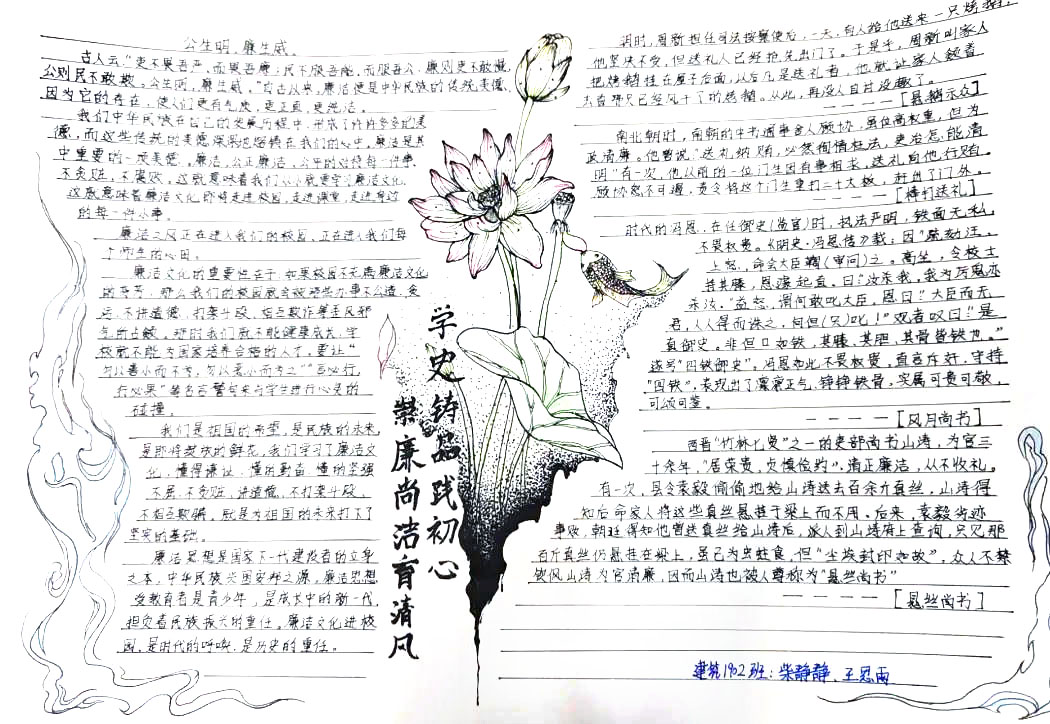 公生明，廉生威。
古人云，"吏不畏吾严，而畏吾廉；民不服吾能，而服吾公，廉则吏不敢慢，
公则民不敢欺，公生明，廉生威。"自古以来，廉洁便是中华民族的传统美德，
因为它的存在，使人们更有礼度，更正直，更纯洁。
我们中华民族在自己的发展历程中，形成了许许多多的美
德，而这些传统的美德深深地熔铸在我们的心中，廉洁是其
中重要的一项美德。廉洁，公正廉洁，公平的对待每一件事，
不贪赃，不受贿。这就意味着我们从小就要学习廉洁文化，
这就意味着廉洁文化即将走进校园，走进课堂，走进身边
的每一件小事。
廉洁之风正在进入我们的校园，正在进入我们每
个师生的心田。
廉洁文化的重要性在于，如果校园不充满廉洁文化
的芬芳，那么我们的校园就会被那些办事不公道，贪
污，不讲道德，打架斗殴，相互欺诈等歪风邪
气所占敏。那时我们就不能健康成长，学
校就不能为国家培养合格的人才，要让"
勿以善小而不为，勿以恶小而为之""言必行，
行必果"等名言警句来与学生进行心灵的
碰撞。
我们是祖国的希望，是民族的未来，
是即将绽放的鲜花，我们学习了廉洁文
化，懂得谦让，懂的勤奋，懂的坚强
不屈，不贪赃，讲道德，不打架斗殴，
不相互欺骗，就是为祖国的未来打下了
坚实的基础。
廉洁思想是国家下一代建设者的立身
之本，中华民族兴国安邦之源，廉洁思想
受教育者是青少年，是成长中的新一代，
担负着民族振兴的重任。廉洁文化进校
园，是时代的呼唤，是历史的重任。
学史铸品践初心
崇廉尚洁育清风
明时，周新担任司法按察使后，一天，有人给他送来一只烤鹅，
他坚决不受，但送礼人已经抢先出门了。于是乎，周新叫家人
把烤鹅挂在屋子后面，以后凡是送礼者，他就让家人领着
去看那只已经风干了的烤鹅。从此，再没人自讨没趣了。
————[悬鹅示众]
南北朝时，南朝的中书通事舍人顾协，虽位高权重，但为
政清廉。他曾说："送礼纳贿，必然徇情枉法，吏治怎能清
明"有一次，他从前的一位门生因有事相求，送礼向他行贿。
顾协怒不可遏，责令将这个门生重打二十大板，赶出了门外。
————[棒打送礼]
时代的冯恩，在任御史(监官)时，执法严明，铁面无私，
不畏权贵。《明史·冯恩传》载：因"疏劾汪，
上怒，命会大臣鞫(审问)之。
是
真御史。非但口如铁，其膝，其胆，其骨皆铁也。"
遂号"四铁御史"。冯恩如此不畏权贵，直言斥奸，守持
"四铁"，表现出了凛凛正气，铮铮铁骨，实属可贵可敬，
可颂可鉴。
————[风月尚书]
西晋"竹林七贤"之一的吏部尚书山涛，为官三
十余年，"居荣贵，贞慎俭约"，清正廉洁，从不收礼。
有一次，县令袁毅偷偷地给山涛送去百余斤真丝，山涛得
知后命家人将这些真丝悬挂于梁上而不用。后来，袁毅劣迹
事败，朝廷得知他曾送真丝给山涛后，派人到山涛府上查询，只见那
百斤真丝仍悬挂在梁上，虽已为虫蛀食，但"尘埃封印如故"。众人不禁
钦佩山涛为官清廉，因而山涛也被人尊称为"悬丝尚书"
————[悬丝尚书]
建筑1902班：柴静静、王思雨